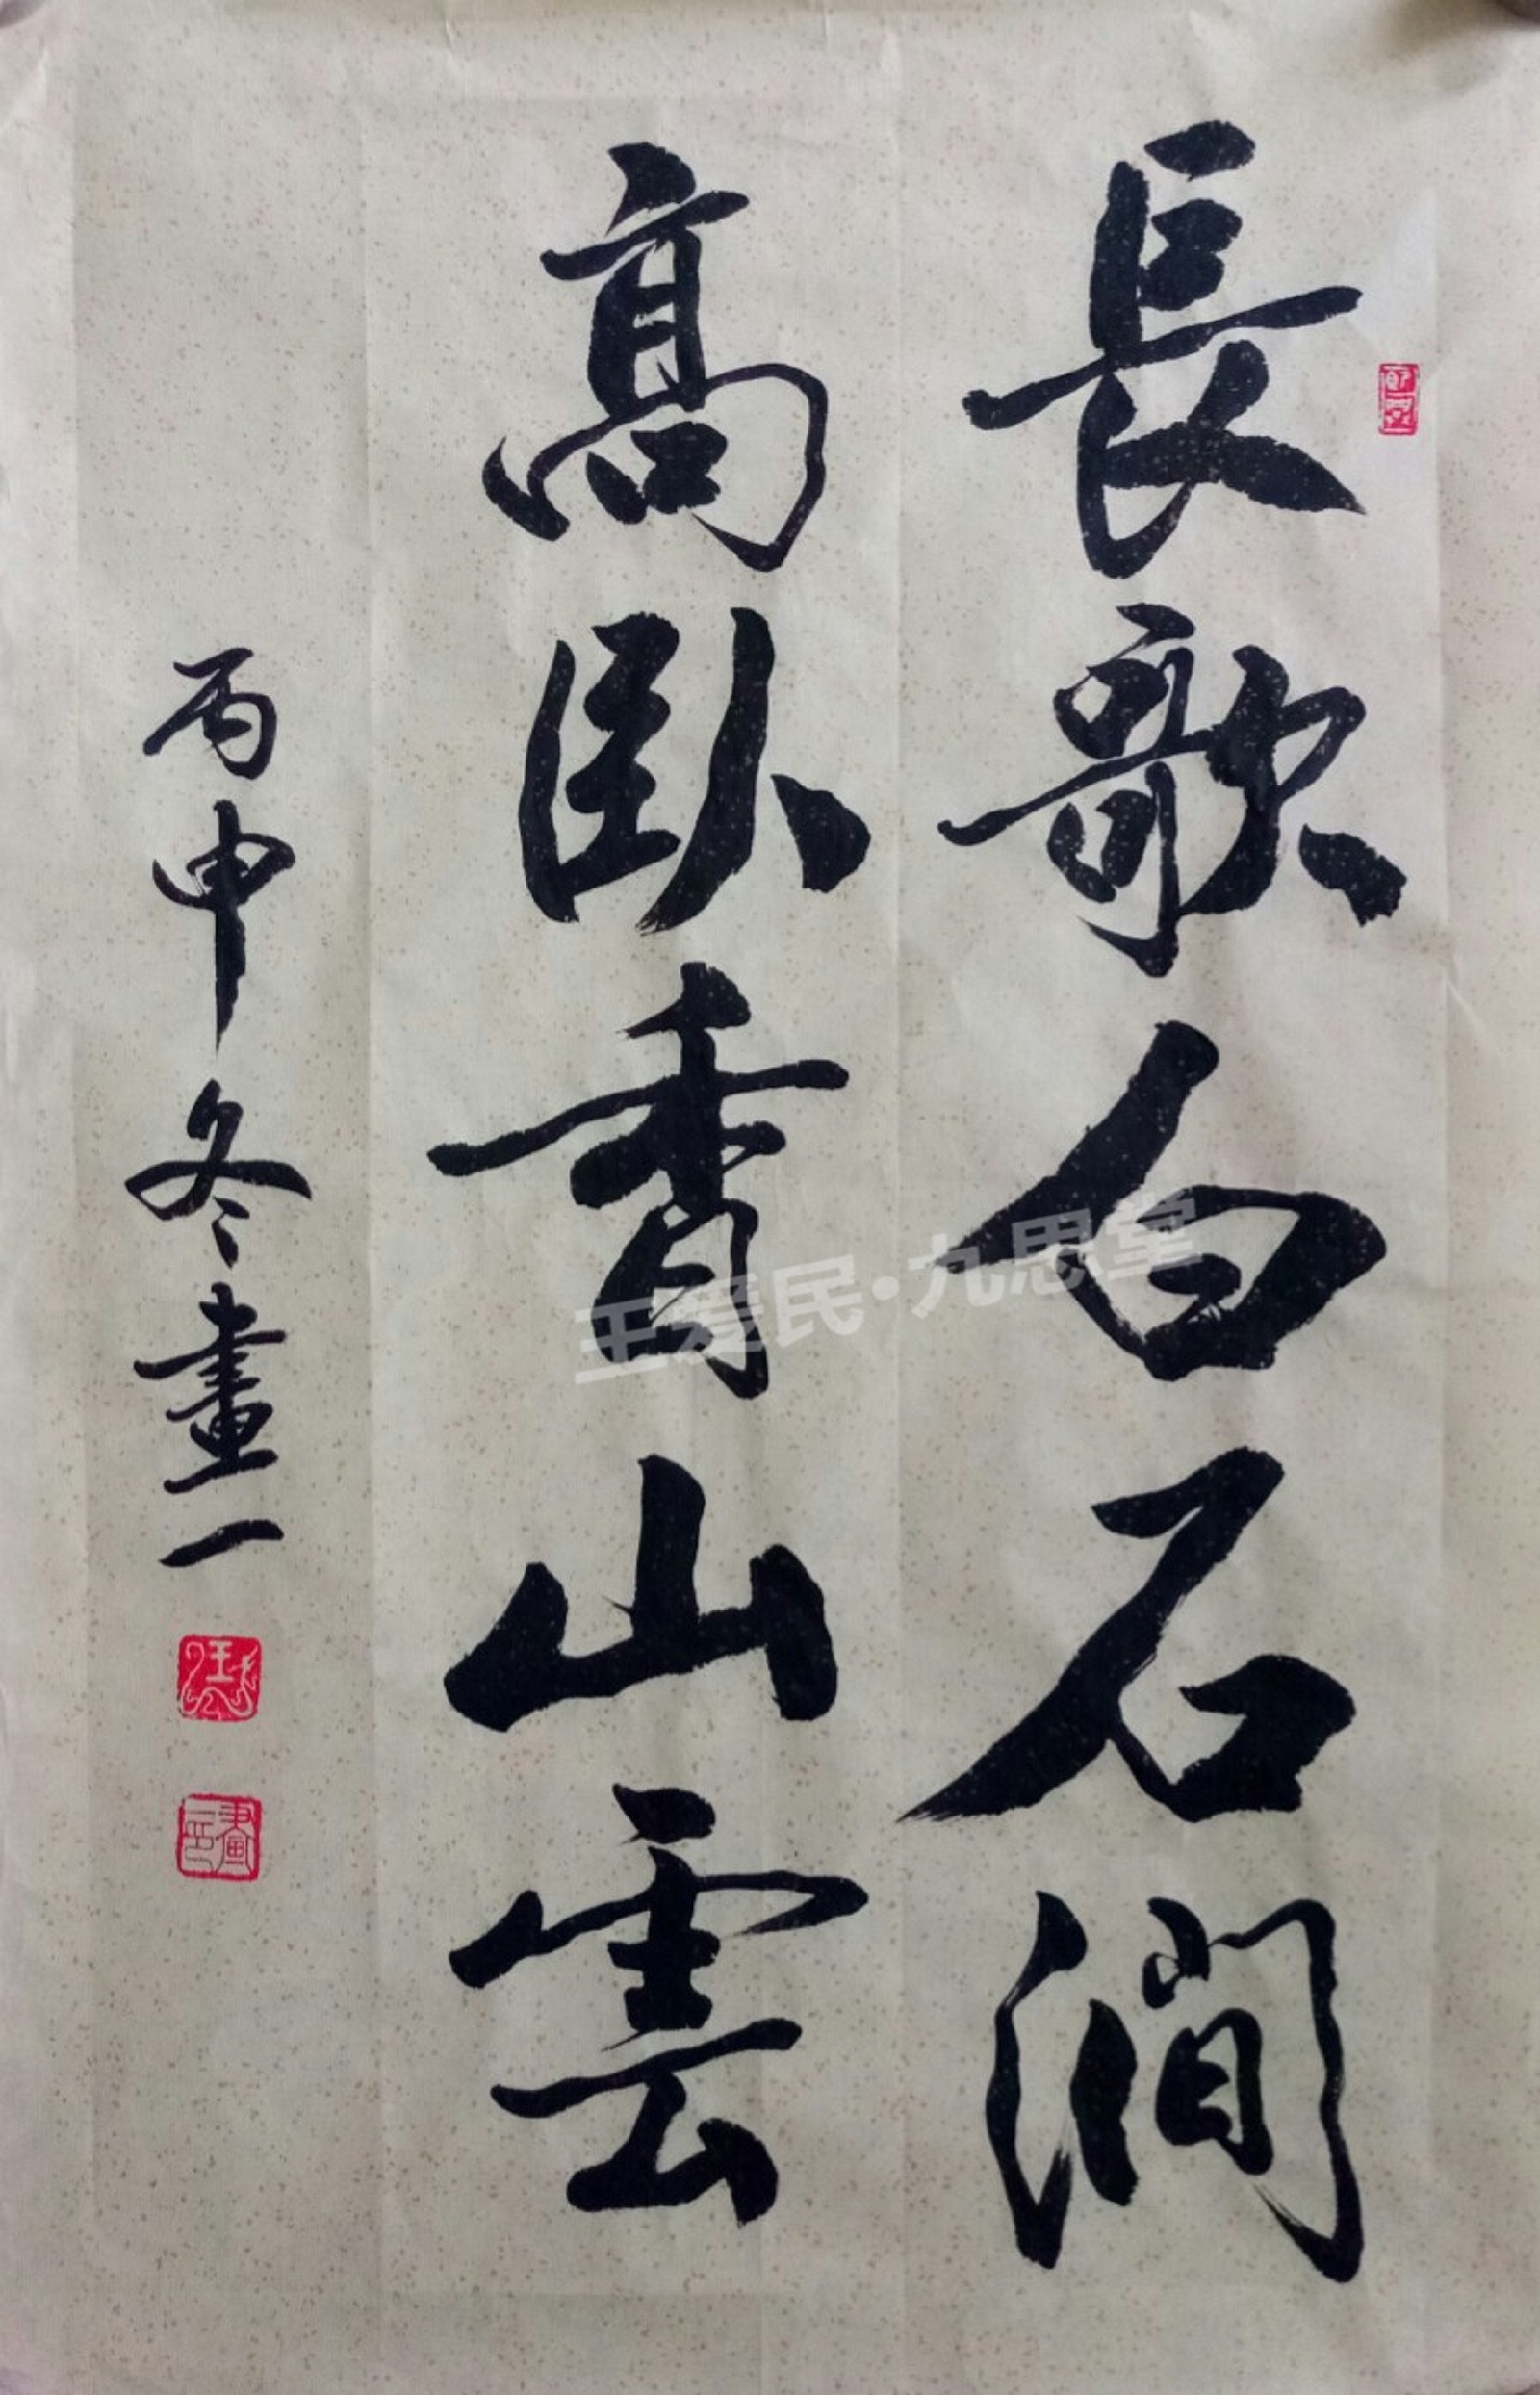 長歌白石澗
高臥香山雲
丙申冬畫一
王爱民·九思堂